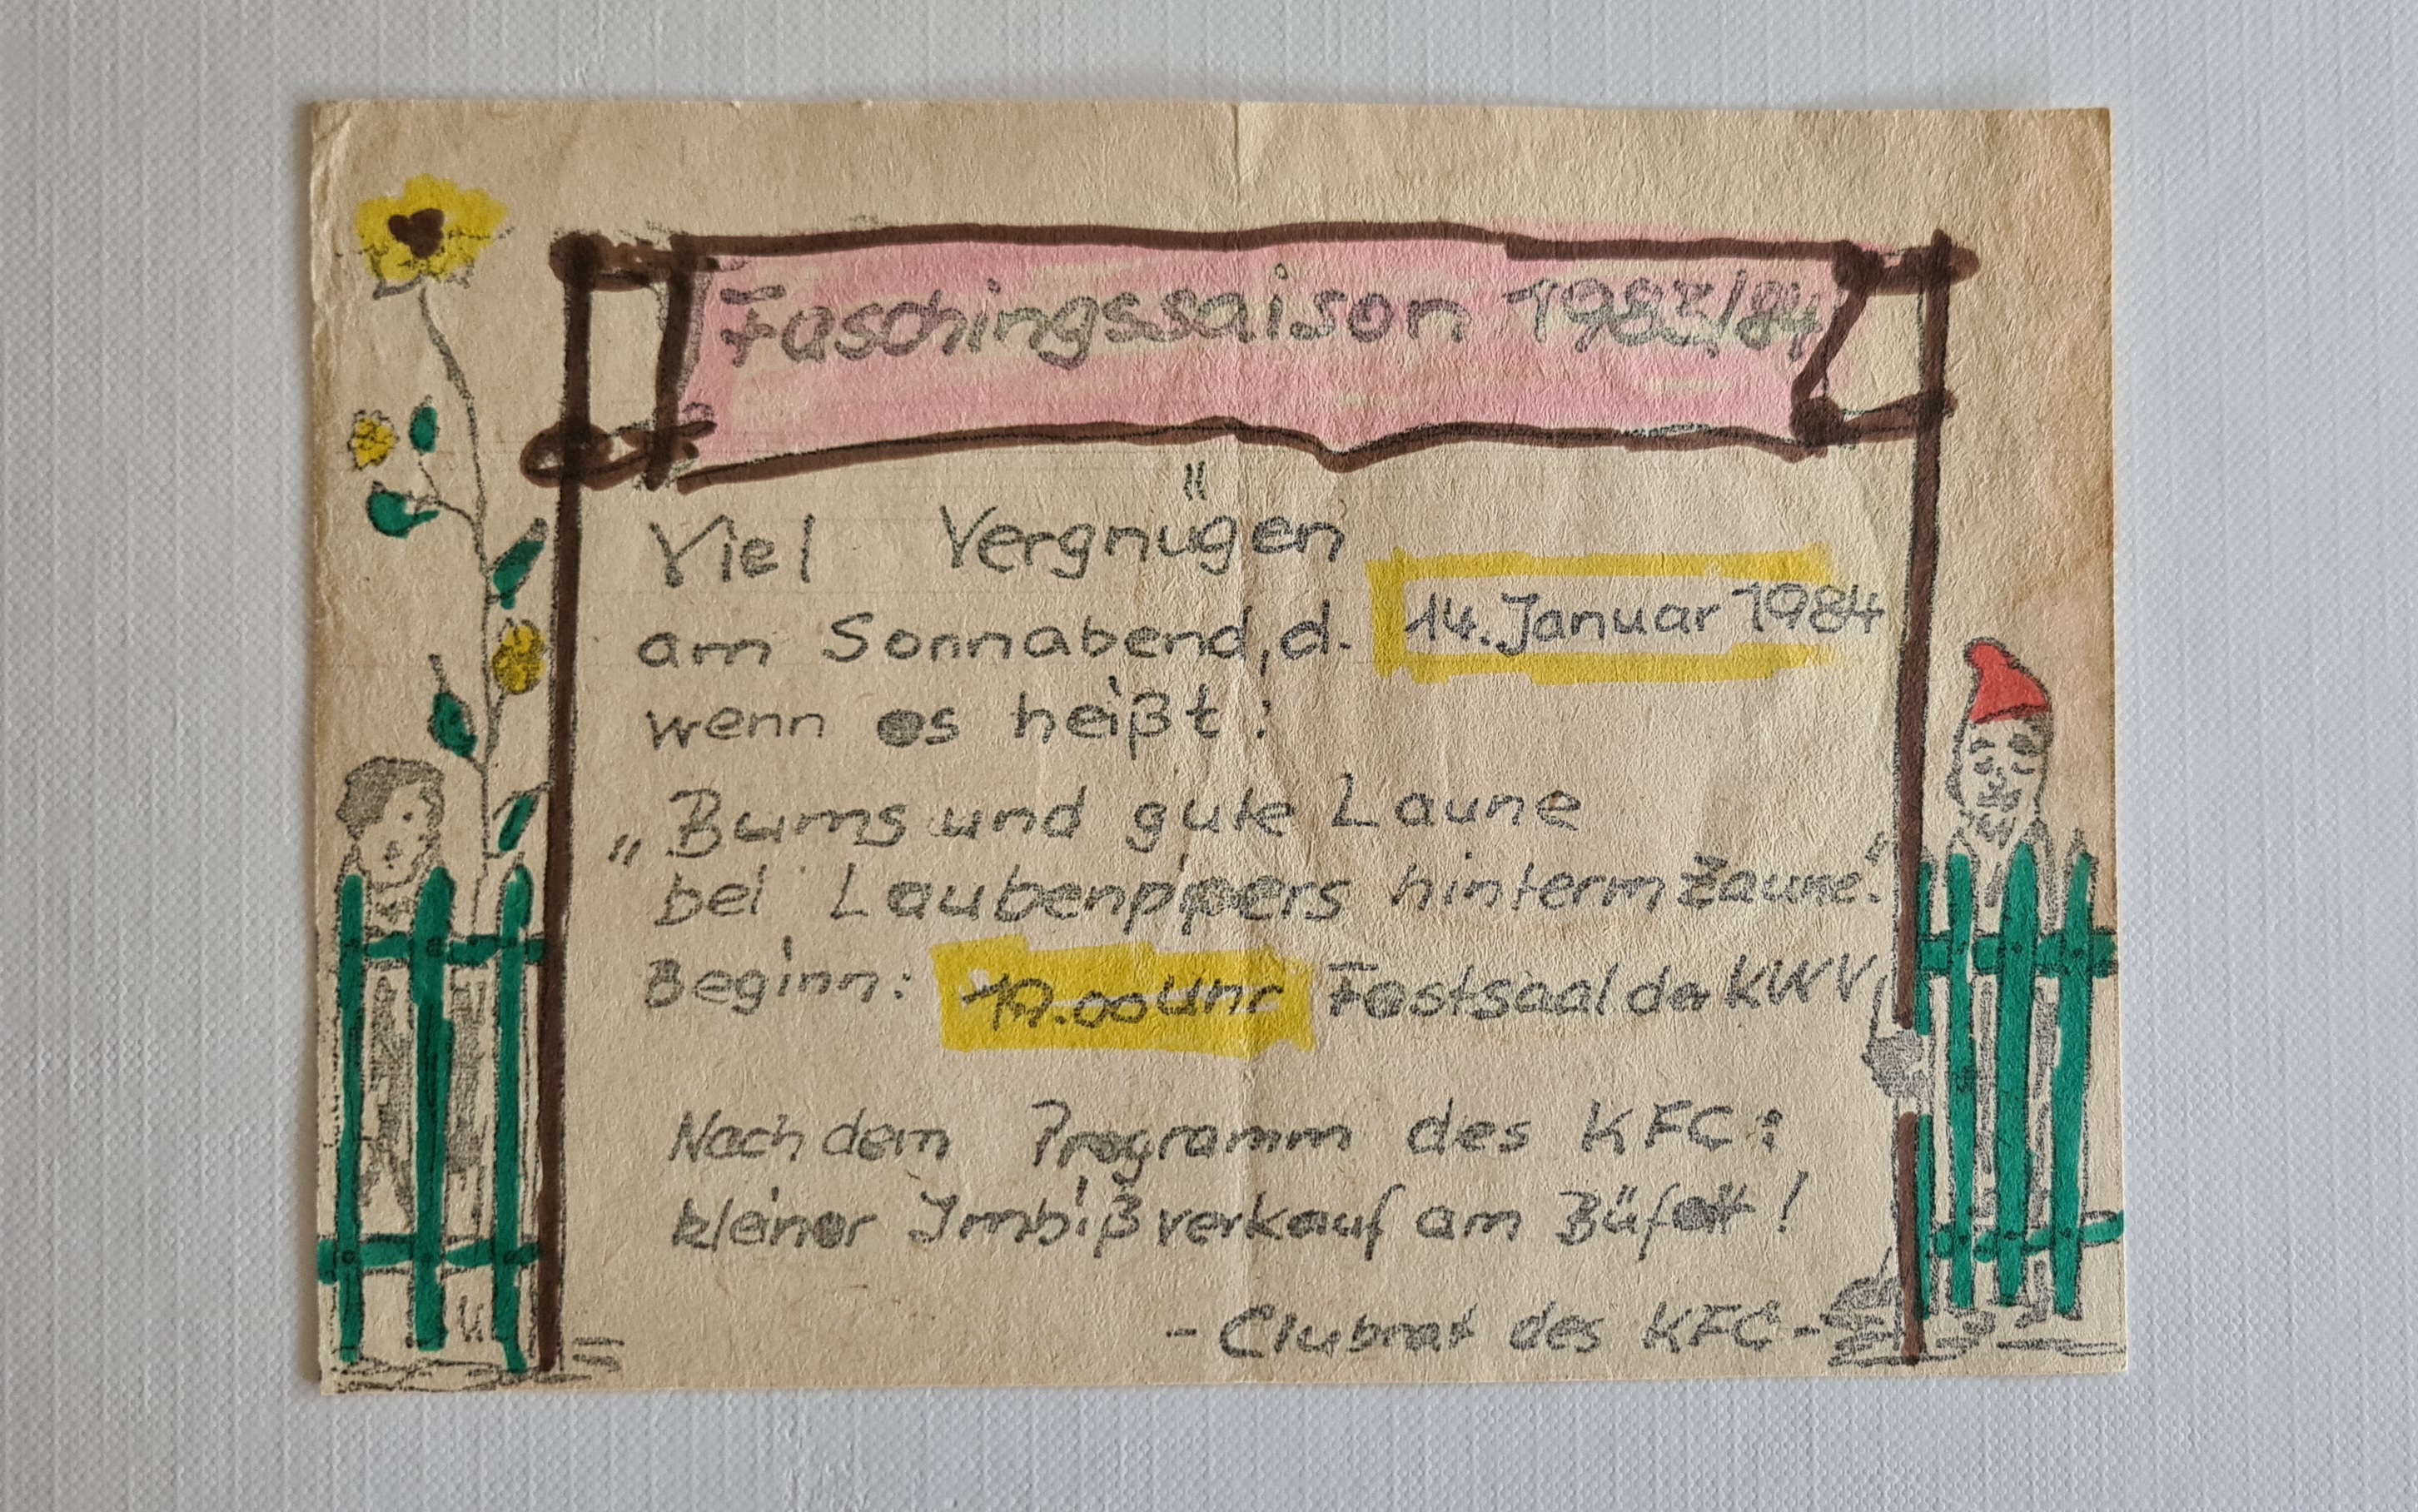 Faschingssaison 1983/84
Viel Vergnügen
am Sonnabend, d. 14. Januar 1984
wenn es heißt:
„Bums und gute Laune
bei Laubenpipers hinterm Zaune."
Beginn: Uhr Festsaal der KWV
Nach dem Programm des KFC:
kleiner Imbißverkauf am Büfett!
- Clubrat des KFC -